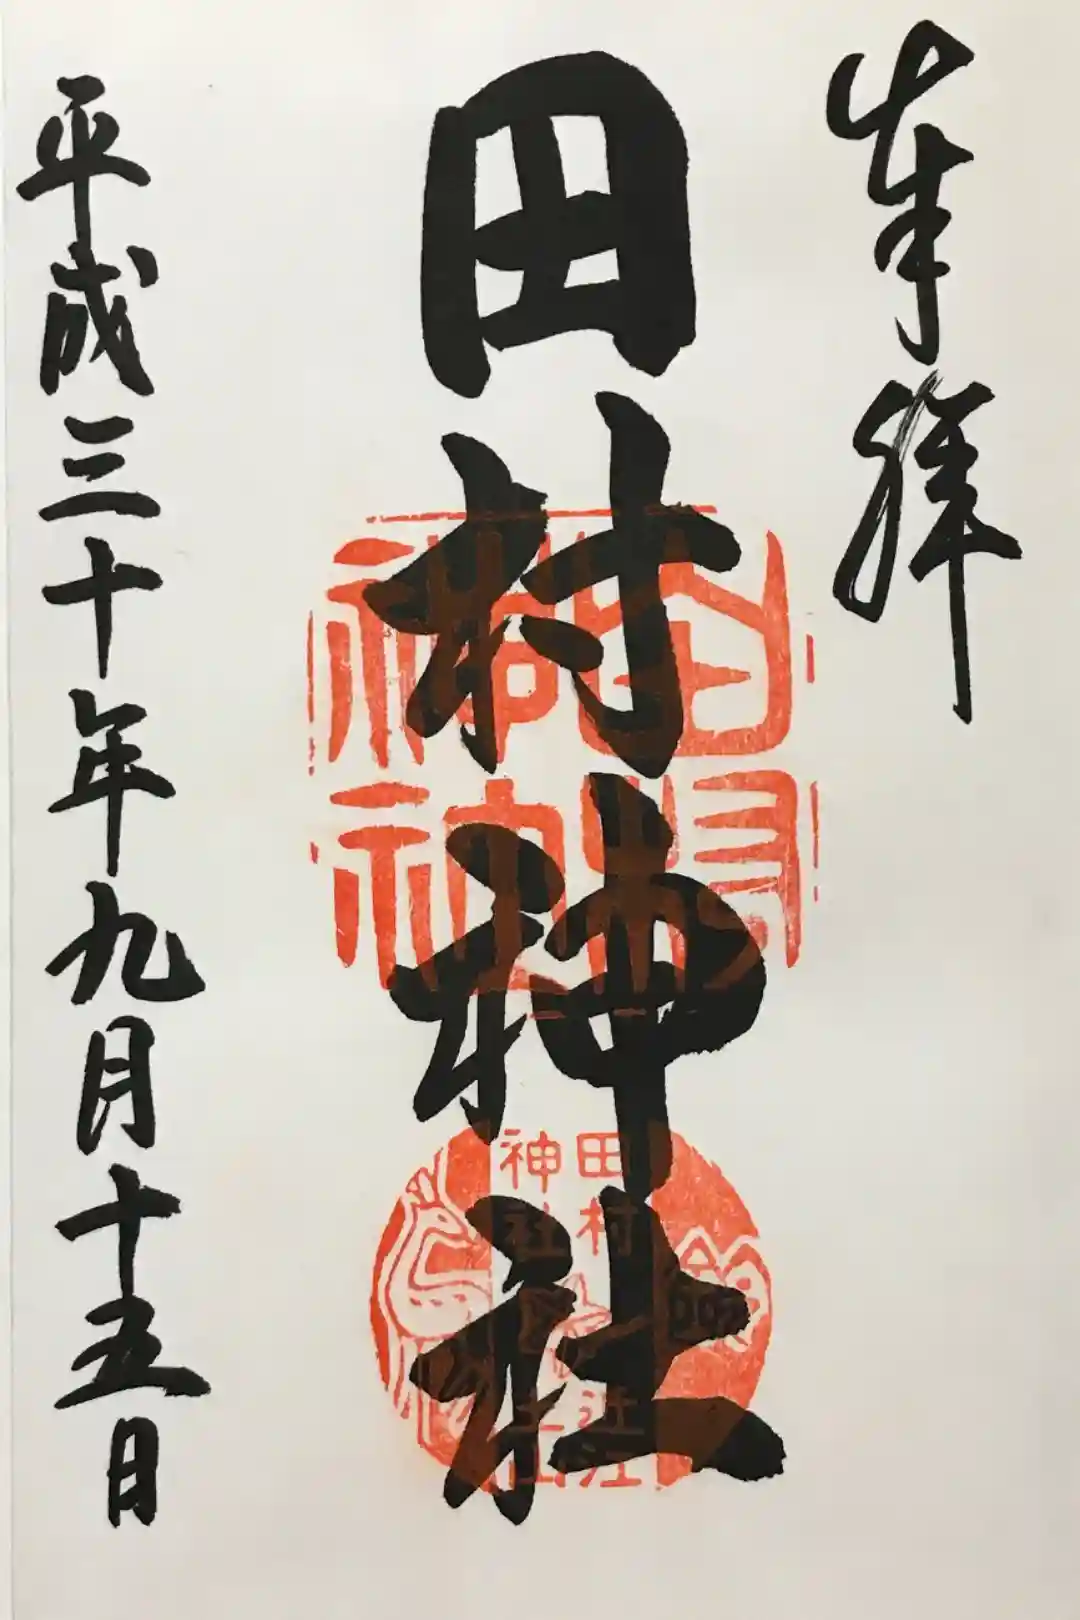 奉拝
田村神社
田村
神社
田村
神社
近江
土山
平成三十年九月十五日